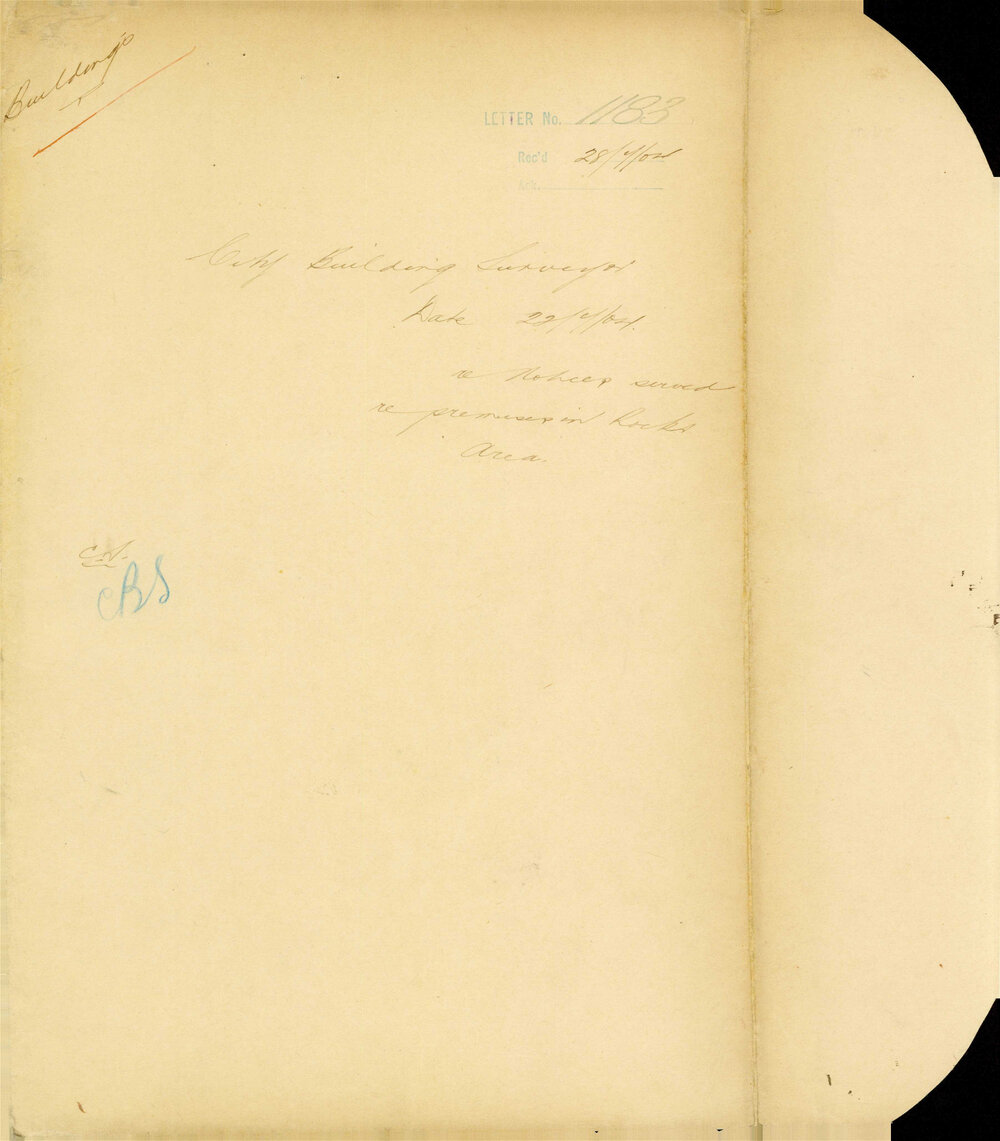 Buildings
LETTER No. 1183
Rec'd 28/4/04
Ack.
City Building Surveyor
Date 22/4/04.
re Notices served
re premises in Rocks
Area.
CBS